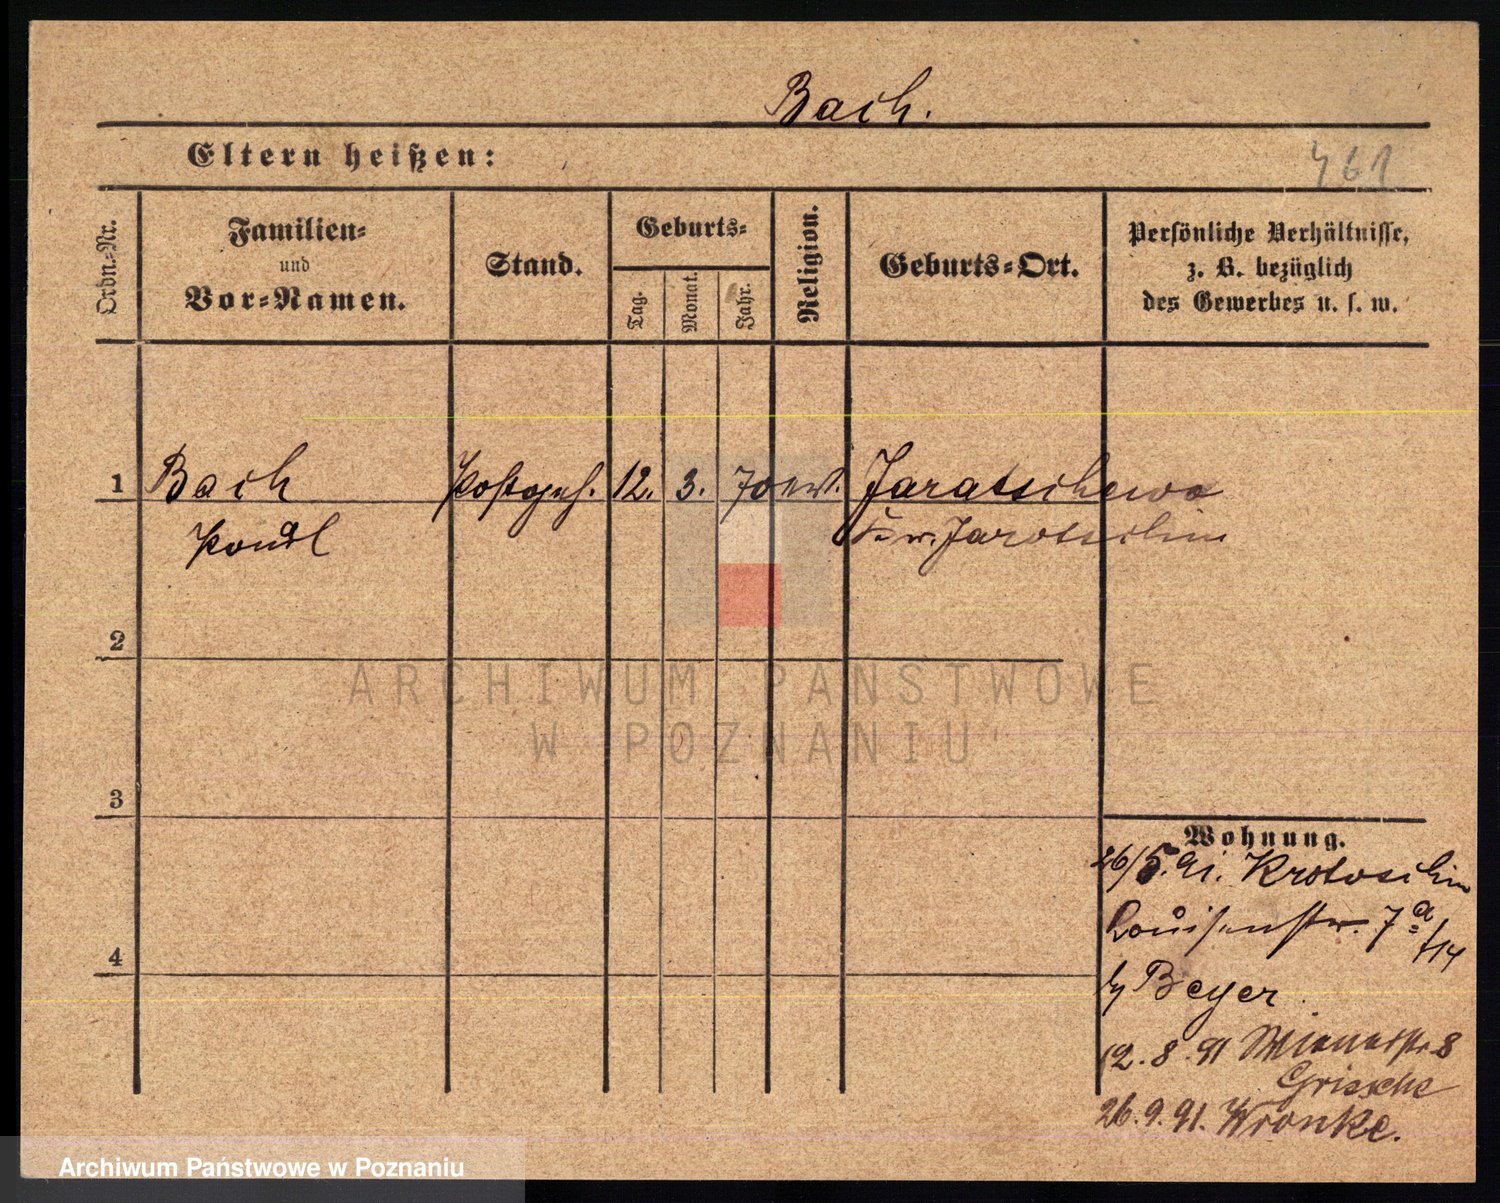 Bach.
Eltern heißen:
461
Ordn.-Nr.
Familien-
und
Vor-Namen.
Stand.
Geburts-
Tag.
Monat.
Jahr.
Religion.
Geburts-Ort.
Persönliche Verhältnisse,
z. B. bezüglich
des Gewerbes u. s. w.
1 Bach Postgeh. 12. 3. 70 ev. Jaratschewo
Paul Kr. Jarotschin
2
ARCHIWUM PAŃSTWOWE
W POZNANIU
3
Wohnung.
26/5.91. Krotoschin
Louisenstr. 7a/
b/ Beyer
4
12. 8. 91 8
Griesche
26. 9. 91. Wronke.
Archiwum Państwowe w Poznaniu